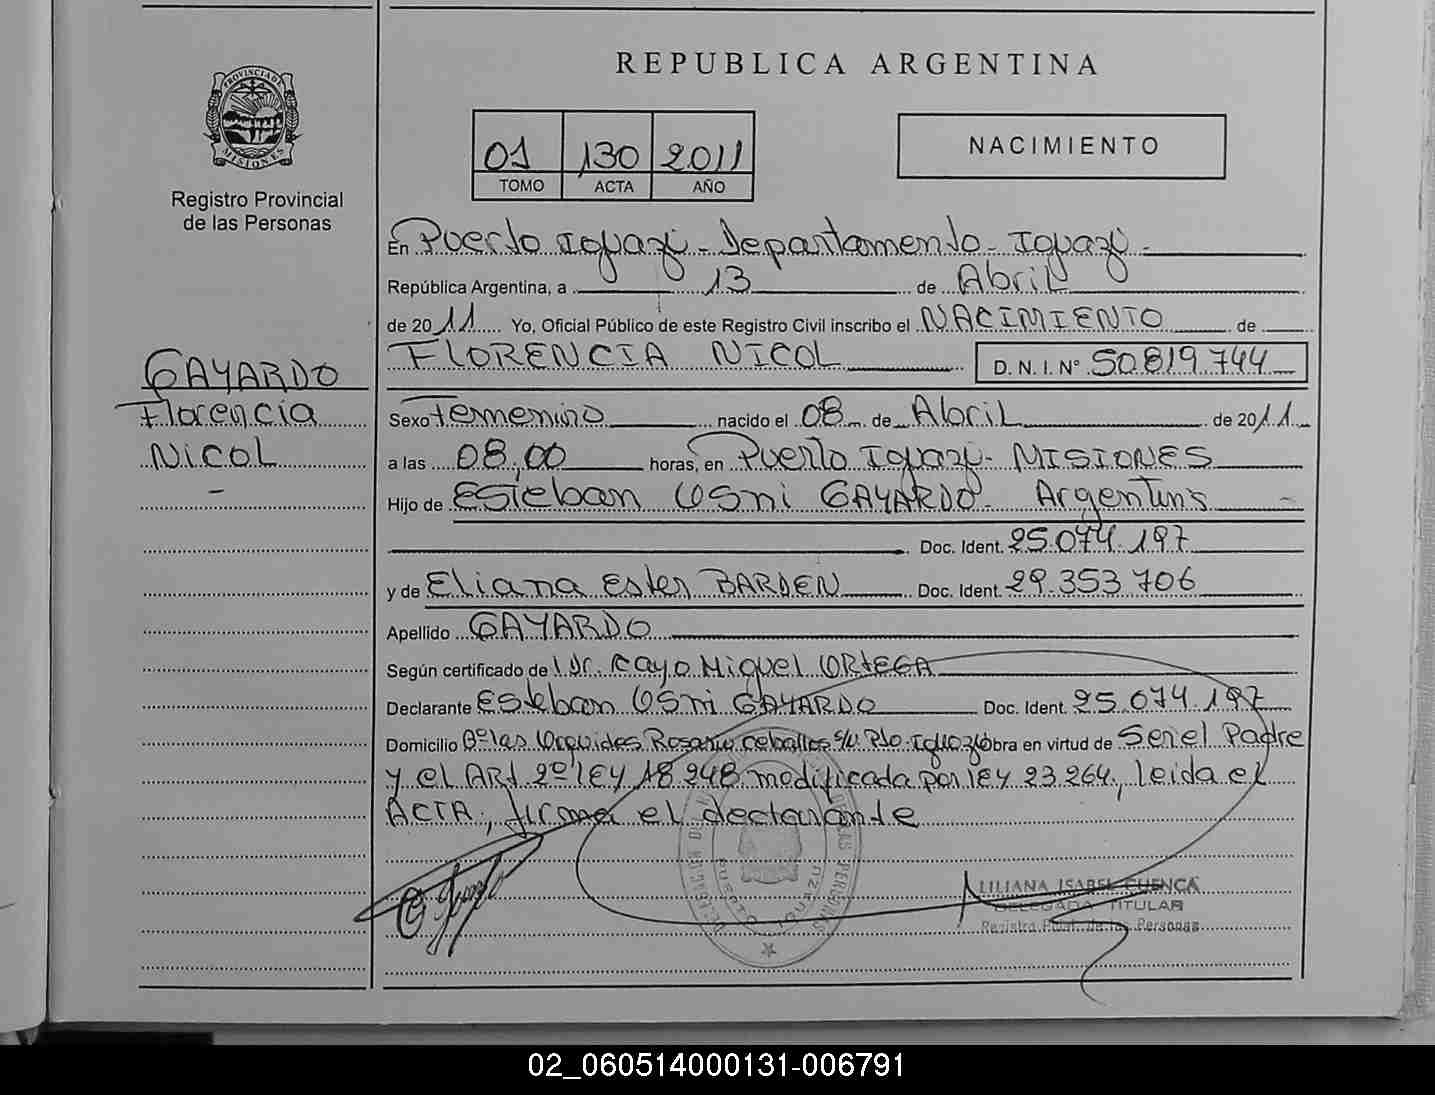 REPUBLICA ARGENTINA
PROVINCIA DE MISIONES
Registro Provincial
de las Personas
01 130 2011
TOMO ACTA AÑO
NACIMIENTO
En Puerto Iguazú - Departamento - Iguazú -
República Argentina, a 13 de Abril
de 2011 Yo, Oficial Público de este Registro Civil inscribo el NACIMIENTO de
FLORENCIA NICOL D. N. I. Nº 50.819.744
GAYARDO
Florencia
NICOL
-
Sexo Femenino nacido el 08 de Abril de 2011
a las 08,00 horas, en Puerto Iguazú - MISIONES
Hijo de Esteban OSni GAYARDO - Argentins -
Doc. Ident. 25.074.197
y de Eliana Ester BARDEN Doc. Ident. 29.353.706
Apellido GAYARDO
Según certificado de Dr. Cayo Miguel ORTEGA
Declarante Esteban OSni GAYARDO Doc. Ident. 25.074.197
Domicilio Bº las Orquides Rosario ceballos S/N. Pto. Iguazú Obra en virtud de Ser el Padre
y el ARt. 2º lEY 18.248 modificada por lEY 23.264, leida el
ACTA, firma el declarante
LILIANA ISABEL CUENCA
DELEGADA TITULAR
Registro Pcial. de las Personas
02_060514000131-006791